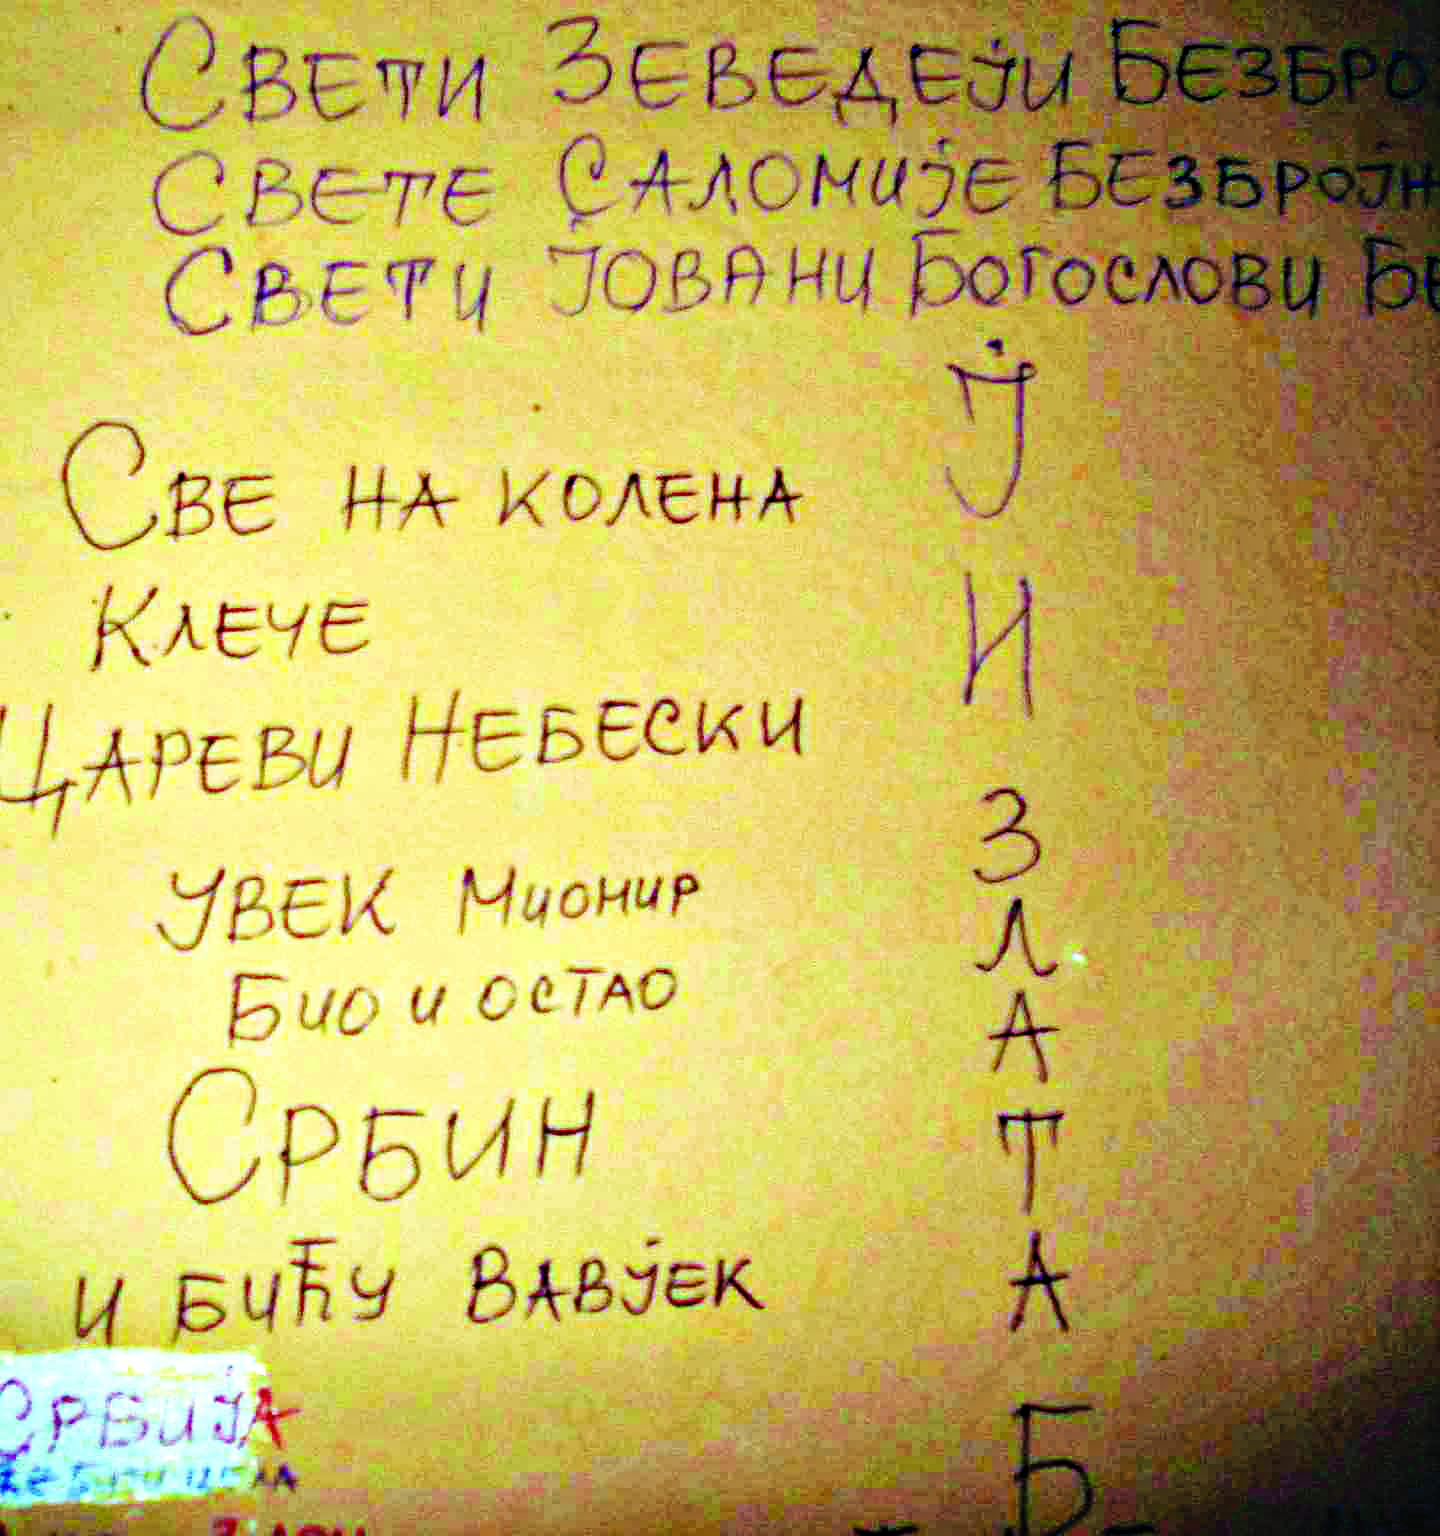 СВЕТИ ЗЕВЕДЕЈИ БЕЗБРО
СВЕТЕ САЛОМИЈЕ БЕЗБРОЈН
СВЕТИ ЈОВАНИ БОГОСЛОВИ БЕ
СВЕ НА КОЛЕНА
КЛЕЧЕ
ЦАРЕВИ НЕБЕСКИ
УВЕК МИОНИР
БИО И ОСТАО
СРБИН
И БИЋУ ВАВЈЕК
СРБИЈА
Ј
И
З
Л
А
Т
А
Б